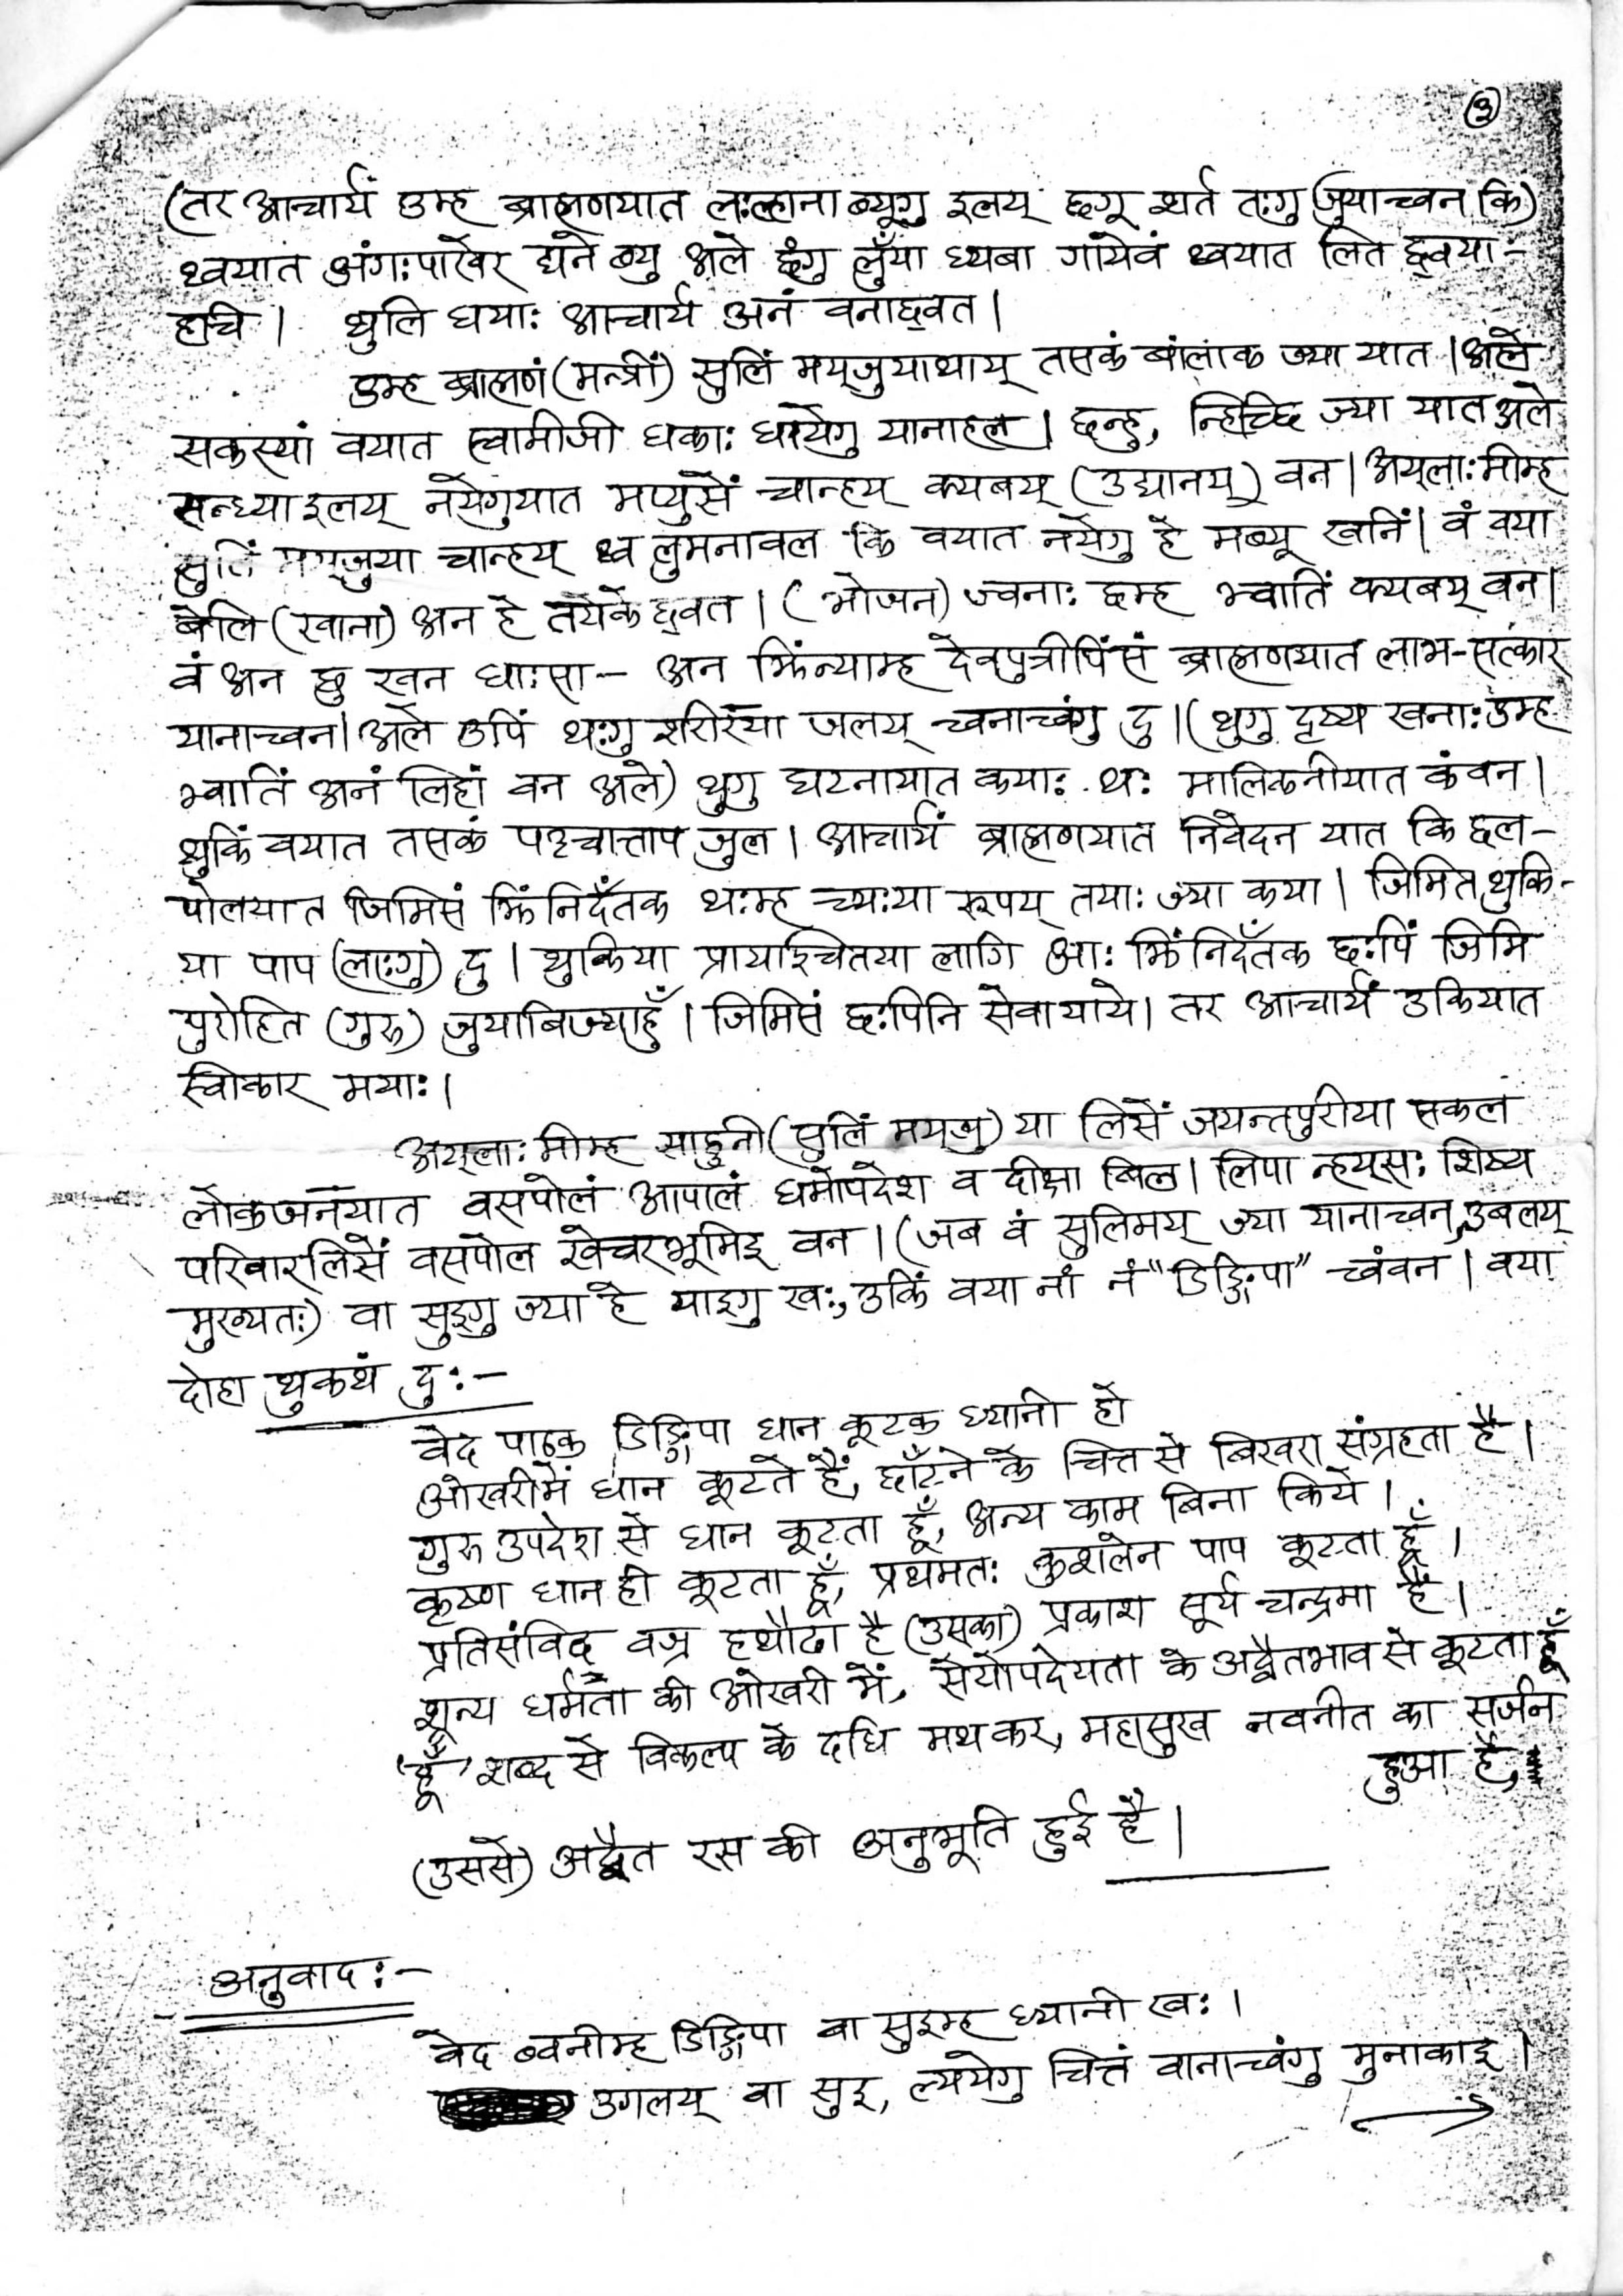 ③
(तर आचार्यं उम्ह ब्राह्मणयात लःल्हाना ब्यूगु इलय् छगू शर्त तःगु जुयाच्वन कि)
थ्वयात अंगःपाखेर द्यने ब्यु अले छंगु लुँया ध्यबा गायेवं थ्वयात लित छ्वया-
हाचि । थुलि धयाः आचार्य अनं वनाछ्वत ।
उम्ह ब्राह्मणं (मन्त्रीं) सुलिं मय्जुयाथाय् तसकं बांलाक ज्या यात । अले
सकस्यां वयात स्वामीजी धकाः धायेगु यानाहल । छन्हु, न्हिच्छि ज्या यात अले
सन्ध्याइलय् नयेगुयात मप्युसें चान्हय् क्यबय् (उद्यानय्) वन । अय्लाःमीम्ह
सुलिं मय्जुया चान्हय् थ्व लुमनावल कि वयात नयेगु हे मब्यू खनिं । वं वया
बेलि (खाना) अन हे तयेके छ्वत । ( भोजन) ज्वनाः छम्ह भ्वातिं क्यबय् वन ।
वं अन छु खन धाःसा — अन झिंन्याम्ह देवपुत्रीपिंसं ब्राह्मणयात लाभ-सत्कार
यानाच्वन । अले उपिं थःगु शरीरया जलय् च्वनाच्वंगु दु । (थुगु दृष्य खनाः उम्ह
भ्वातिं अनं लिहां वन अले) थुगु घटनायात कयाः थः मालिकनीयात कंवन ।
थुकिं वयात तसकं पश्चात्ताप जुल । आचार्यं ब्राह्मणयात निवेदन यात कि छल-
पोलयात जिमिसं झिंनिदँतक थःम्ह च्यःया रूपय् तयाः ज्या कया । जिमित थुकि-
या पाप (लाःगु) दु । थुकिया प्रायश्चितया लागि आः झिंनिदँतक छःपिं जिमि
पुरोहित (गुरु) जुयाबिज्याहुँ । जिमिसं छःपिनि सेवा याये । तर आचार्यं उकियात
स्वीकार मयाः ।
अय्लाःमीम्ह साहुनी (सुलिं मय्जु) या लिसें जयन्तपुरीया सकल
लोकजनयात वसपोलं आपालं धर्मोपदेश व दीक्षा बिल । लिपा न्हय्सः शिष्य
परिवारलिसें वसपोल खेचरभूमिइ वन । (जब वं सुलिमय् ज्या यानाच्वन, उबलय्
मुख्यतः) वा सुइगु ज्या हे याइगु खः, उकिं वया नां नं "डिङ्गिपा" च्वंवन । वया
दोहा थुकथं दु :—
वेद पाठक डिङ्गिपा धान कूटक ध्यानी हो
ओखरीमें धान कूटते हैं, छाँटने के चित्त से बिखरा संग्रहता है ।
गुरु उपदेश से धान कूटता हूँ, अन्य काम बिना किये ।
कृष्ण धान ही कूटता हूँ, प्रथमतः कुशलेन पाप कूटता हूँ ।
प्रतिसंविद् वज्र हथौढा है (उसका) प्रकाश सूर्य चन्द्रमा हैं ।
शून्य धर्मता की ओखरी में, सेयोपदेयता के अद्वैतभाव से कूटता हूँ
'हूँ' शब्द से विकल्प के दधि मथकर, महासुख नवनीत का सर्जन
हुआ है,
(उससे) अद्वैत रस की अनुभूति हुई है ।
अनुवाद :—
वेद ब्वनीम्ह डिङ्गिपा वा सुइम्ह ध्यानी खः ।
उगलय् वा सुइ, ल्ययेगु चित्तं वानाच्वंगु मुनाकाइ ।